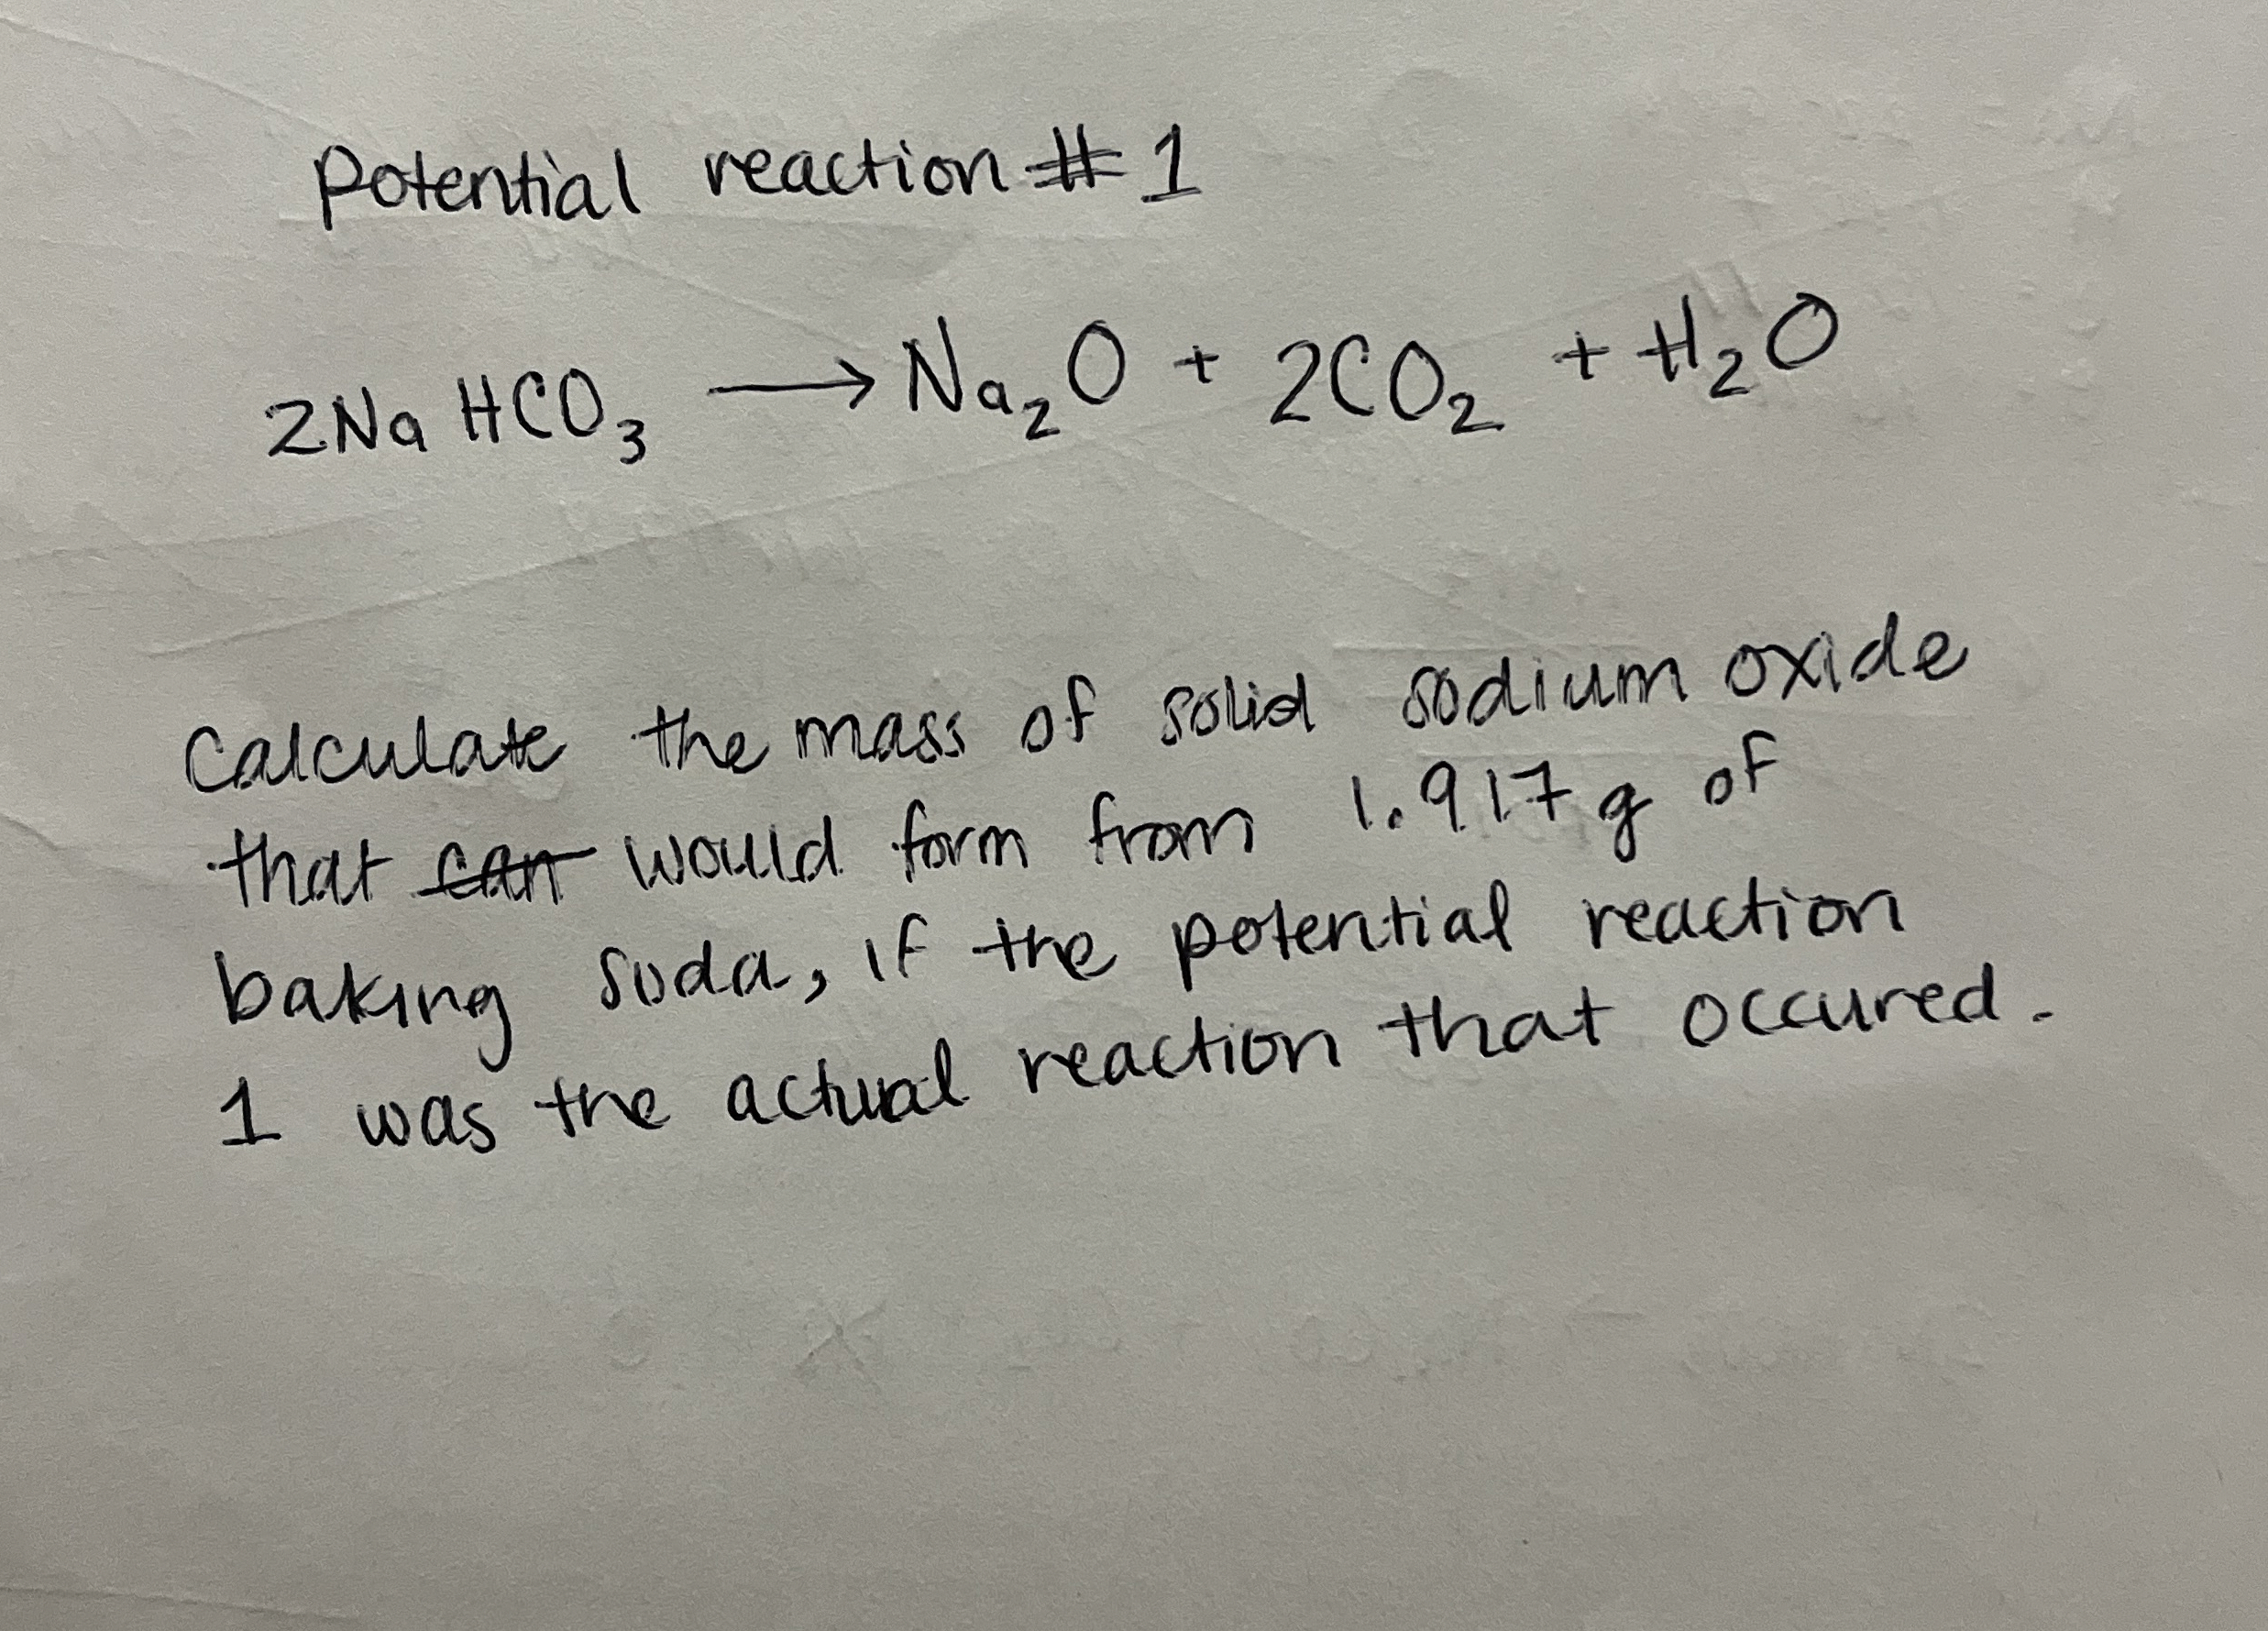 Potential reaction # 1
2Na HCO₃ → Na₂O + 2CO₂ + H₂O
Calculate the mass of solid sodium oxide
that ~~can~~ would form from 1.917 g of
baking soda, if the potential reaction
1 was the actual reaction that occured.